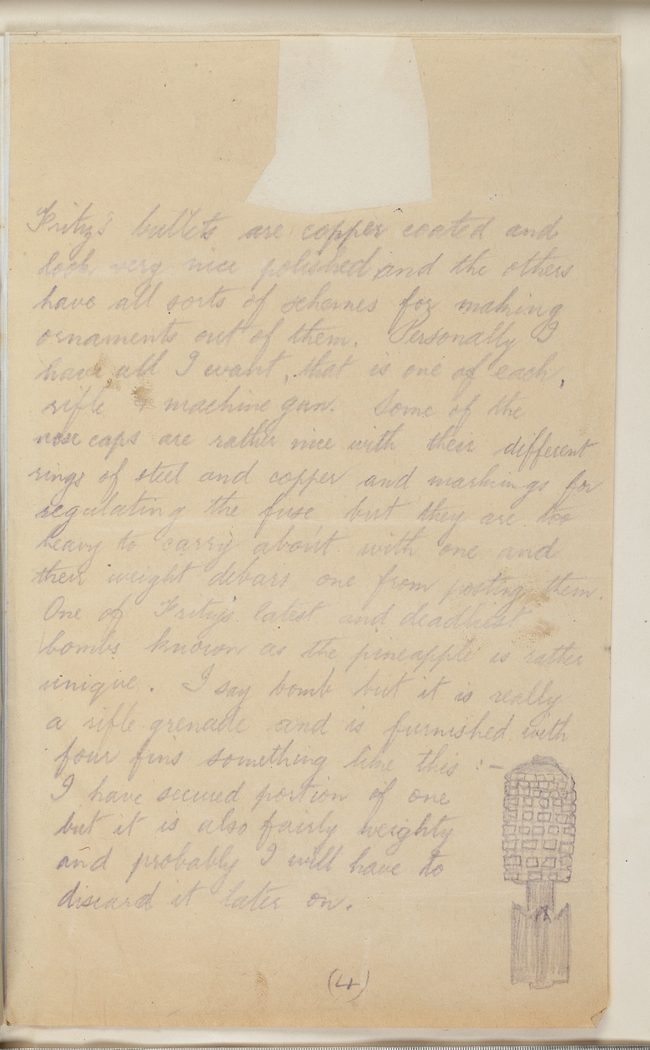 Fritz's bullets are copper coated and
look very nice polished and the others
have all sorts of schemes for making
ornaments out of them. Personally I
have all I want, that is one of each,
rifle & machine gun. Some of the
nose caps are rather nice with their different
rings of steel and copper and markings for
regulating the fuse but they are too
heavy to carry about with one and
their weight debars one from posting them.
One of Fritz's latest and deadliest
bombs known as the pineapple is rather
unique. I say bomb but it is really
a rifle grenade and is furnished with
four fins something like this :-
I have secured portion of one
but it is also fairly weighty
and probably I will have to
discard it later on.
(4)